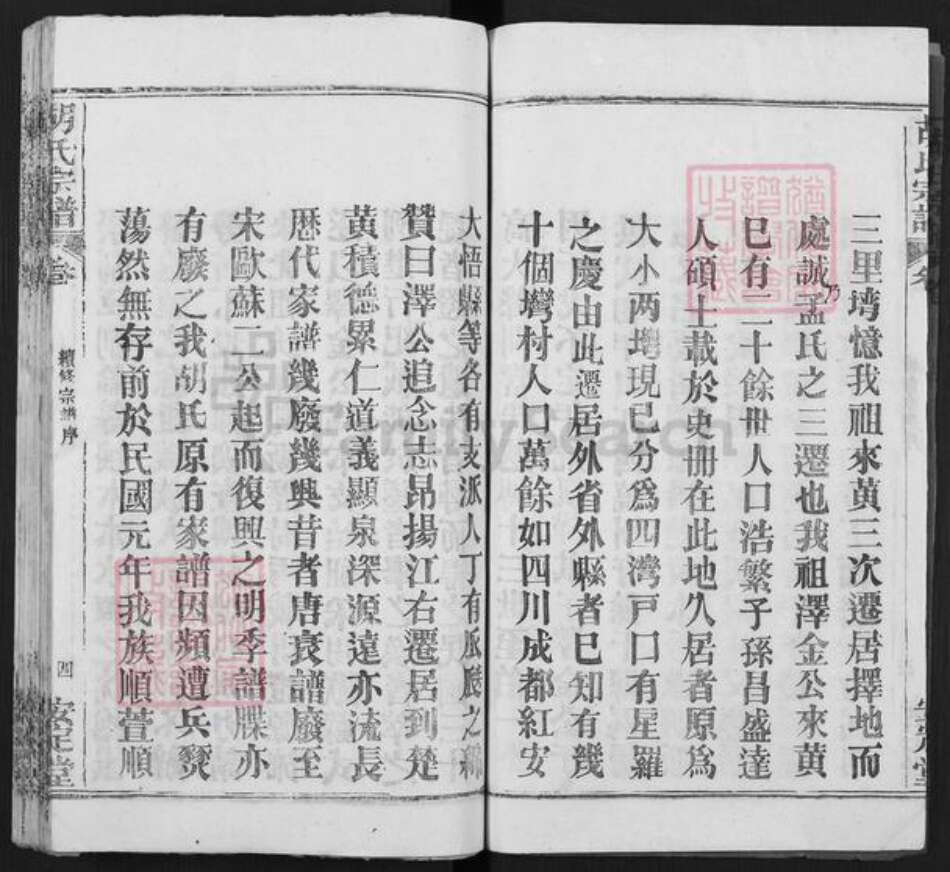 三里塆憶我祖來黃三次遷居擇地而
處誠乃孟氏之三遷也我祖澤金公來黃
已有二十餘世人口浩繁子孫昌盛達
人碩士載於史冊在此地久居者原為
大小两塆現已分爲四灣戸口有星羅
之慶由此遷居外省外縣者已知有幾
十個塆村人口萬餘如四川成都紅安
大悟縣等各有支派人丁有瓜瓞之綿
贊曰澤公追念志昂揚江右遷居到楚
黃積德累仁道義顯泉深源遠亦流長
歷代家譜幾廢幾興昔者唐衰譜廢至
宋歐蘇二公起而復興之明季譜牒亦
有廢之我胡氏原有家譜因頻遭兵燹
蕩然無存前於民國元年我族順萱順
胡氏宗譜
卷
續修宗譜序
四
安定堂